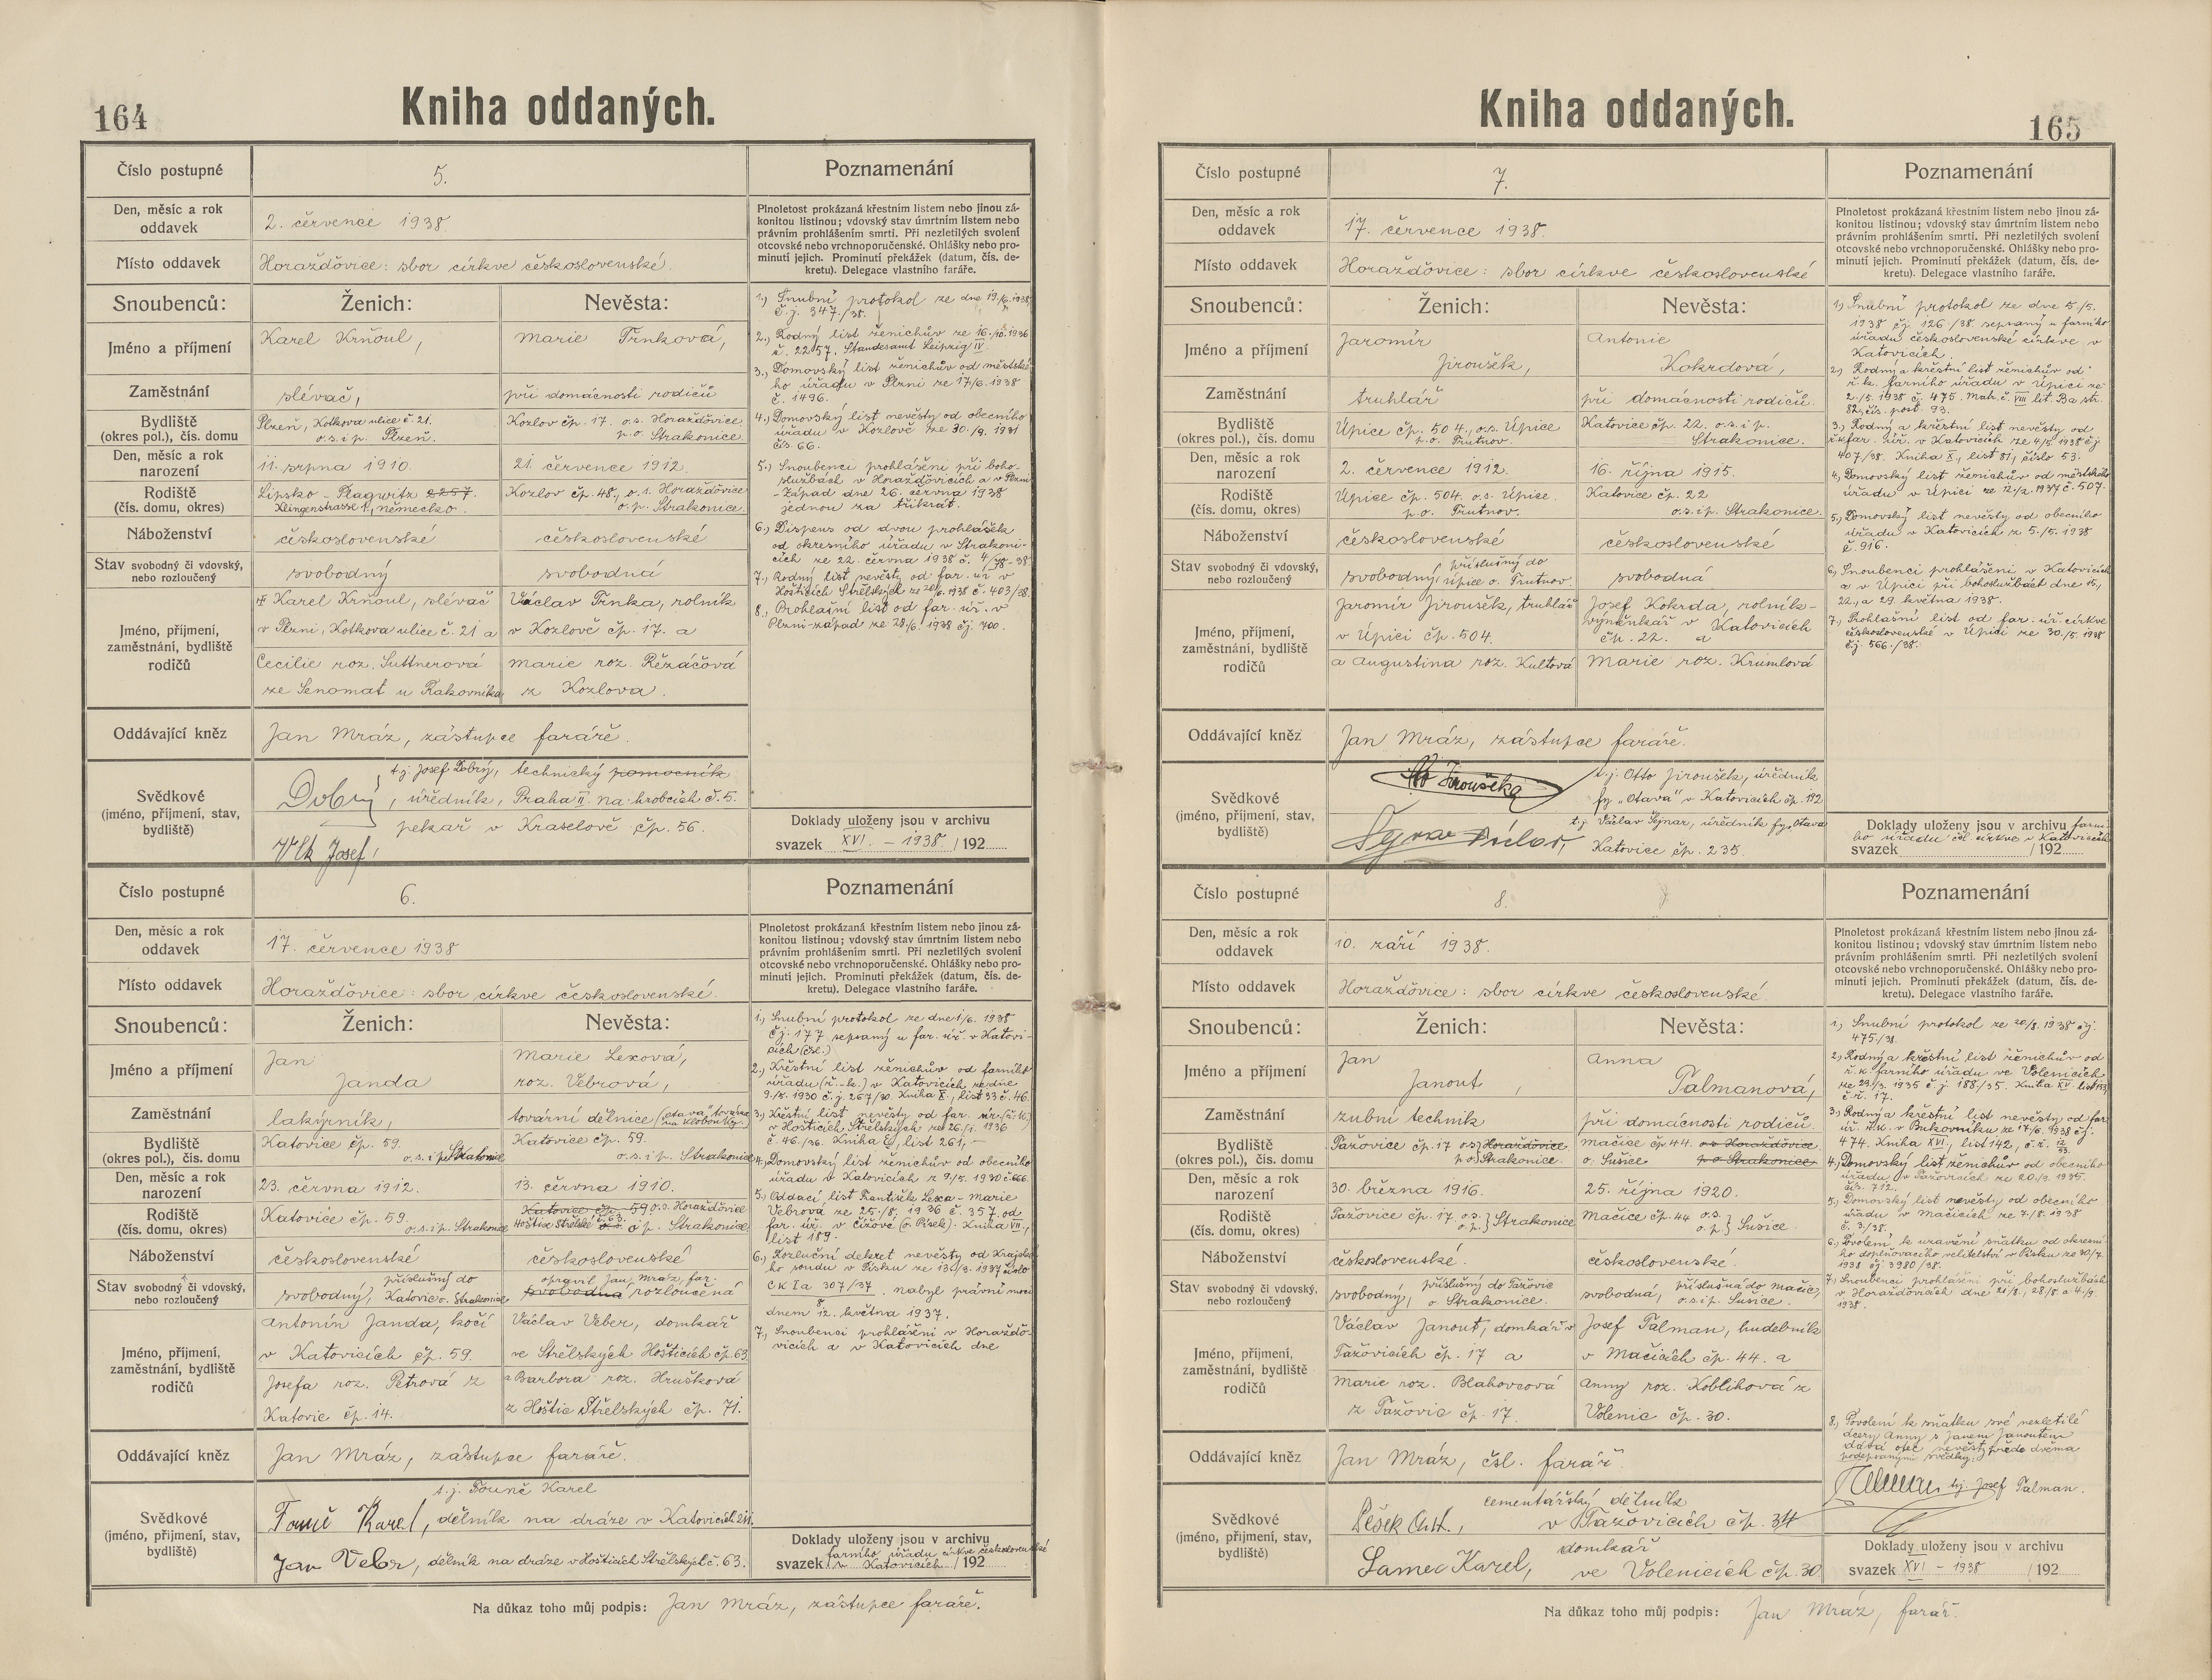 164
Kniha oddaných.
Číslo postupné
5.
Poznamenání
Den, měsíc a rok
oddavek
2. července 1938.
Plnoletost prokázaná křestním listem nebo jinou zá-
konitou listinou; vdovský stav úmrtním listem nebo
právním prohlášením smrti. Při nezletilých svolení
otcovské nebo vrchnoporučenské. Ohlášky nebo pro-
minutí jejich. Prominutí překážek (datum, čís. de-
kretu). Delegace vlastního faráře.
Místo oddavek
Horažďovice: sbor církve československé.
Snoubenců:
Ženich:
Nevěsta:
Jméno a příjmení
Karel Krňoul,
Marie Trnková,
Zaměstnání
slévač,
při domácnosti rodičů
Bydliště
(okres pol.), čís. domu
Plzeň, Kotkova ulice č. 21.
o.s.i p. Plzeň.
Kozlov čp. 17. o.s. Horažďovice
p.o. Strakonice.
Den, měsíc a rok
narození
11. srpna 1910.
21. července 1912.
Rodiště
(čís. domu, okres)
Lipsko - Plagwitz 2257.
Klingenstrasse 1, německo.
Kozlov čp. 48., o.s. Horažďovice
o.p. Strakonice.
Náboženství
československé
československé
Stav svobodný či vdovský,
nebo rozloučený
svobodný
svobodná
Jméno, příjmení,
zaměstnání, bydliště
rodičů
Karel Krňoul, slévač
v Plzni, Kotkova ulice č. 21 a
Cecilie roz. Suttnerová
ze Senomat u Rakovníka
Václav Trnka, rolník
v Kozlově čp. 17. a
Marie roz. Řezáčová
z Kozlova.
1.) Snubní protokol ze dne 19./6. 1938
č.j. 347./38.
2.) Rodný list ženichův ze 16./10. 1936
č. 2257. Standesamt Leipzig IV.
3.) Domovský list ženichův od městské-
ho úřadu v Plzni ze 17/6. 1938
č. 1496.
4.) Domovský list nevěsty od obecního
úřadu v Kozlově ze 30./9. 1931
čís. 66.
5.) Snoubenci prohlášeni při boho-
službách v Horažďovicích a v Plzni
-Západ dne 26. června 1938
jednou za třikrát.
6.) Dispens od dvou prohlášek
od okresního úřadu v Strakoni-
cích ze 22. června 1938 č. 4/78-38
7.) Rodný list nevěsty od far. úř. v
Hošticích Střelských ze 20/6. 1938 č. 403/38.
8.) Prohlašní list od far. úř. v
Plzni-západ ze 28/6. 1938 čj. 700.
Oddávající kněz
Jan Mráz, zástupce faráře.
Svědkové
(jméno, příjmení, stav,
bydliště)
t.j. Josef Dobrý, technický pomocník
Dobrý, úředník, Praha II. Na hrobcích č. 5.
pekař v Kraselově čp. 56.
Vlk Josef,
Doklady uloženy jsou v archivu
svazek XVI. - 1938 /192
Číslo postupné
6.
Poznamenání
Den, měsíc a rok
oddavek
17. července 1938
Plnoletost prokázaná křestním listem nebo jinou zá-
konitou listinou; vdovský stav úmrtním listem nebo
právním prohlášením smrti. Při nezletilých svolení
otcovské nebo vrchnoporučenské. Ohlášky nebo pro-
minutí jejich. Prominutí překážek (datum, čís. de-
kretu). Delegace vlastního faráře.
Místo oddavek
Horažďovice: sbor církve československé.
Snoubenců:
Ženich:
Nevěsta:
Jméno a příjmení
Jan
Janda
Marie Lexová,
roz. Vebrová,
Zaměstnání
lakýrník,
tovární dělnice („Otava" továrna
na klobouky.)
Bydliště
(okres pol.), čís. domu
Katovice čp. 59.
o.s. i p. Strakonice
Katovice čp. 59.
o.s. i p. Strakonice
Den, měsíc a rok
narození
23. června 1912.
13. června 1910.
Rodiště
(čís. domu, okres)
Katovice čp. 59.
o.s.i p. Strakonice
Katovice čp. 59 o.s. Horažďovice
Hoštice Střelské č. 63. o.p. Strakonice
Náboženství
československé
československé
Stav svobodný či vdovský,
nebo rozloučený
příslušný do
svobodný, Katovic o. Strakonice
opravil Jan Mráz, far.
svobodná rozloučená
Jméno, příjmení,
zaměstnání, bydliště
rodičů
Antonín Janda, kočí
v Katovicích čp. 59.
Josefa roz. Petrová z
Katovic čp. 14.
Václav Veber, domkář
ve Střelských Hošticích čp. 63
a Barbora roz. Hrušková
z Hoštic Střelských čp. 71.
1.) Snubní protokol ze dne 1/6. 1938
čj. 177 sepsaný u far. úř. v Katovi-
cích (čsl.)
2.) Křestní list ženichův od farního
úřadu (ř.-k.) v Katovicích ze dne
9./5. 1930 č.j. 267/30. Kniha X., list 33 č. 46.
3.) Křestní list nevěsty od far. úř. (ř. k.)
v Hošticích Střelských ze 26./1. 1936
č. 46./36. Kniha E, list 261, —
4.) Domovský list ženichův od obecního
úřadu v Katovicích z 9/5. 1930 č. 666.
5.) Oddací list František Lexa - Marie
Vebrová ze 25./8. 1936 č. 357. od
far. úř. v Čížové (o. Písek). Kniha VII.,
list 189.
6.) Rozluční dekret nevěsty od Krajské-
ho soudu v Písku ze 13./3. 1937 číslo
Ck Ia 307/37. nabyl právní moci
dnem 12. května 1937.
7.) Snoubenci prohlášeni v Horažďo-
vicích a v Katovicích dne
Oddávající kněz
Jan Mráz, zástupce faráře.
Svědkové
(jméno, příjmení, stav,
bydliště)
t.j. Founě Karel
Founě Karel, dělník na dráze v Katovicích 211.
Jan Veber, dělník na dráze v Hošticích Střelských č. 63.
Doklady uloženy jsou v archivu
farního úřadu církve československé
svazek v Katovicích /192
Na důkaz toho můj podpis: Jan Mráz, zástupce faráře.
165
Kniha oddaných.
Číslo postupné
7.
Poznamenání
Den, měsíc a rok
oddavek
17. července 1938.
Plnoletost prokázaná křestním listem nebo jinou zá-
konitou listinou; vdovský stav úmrtním listem nebo
právním prohlášením smrti. Při nezletilých svolení
otcovské nebo vrchnoporučenské. Ohlášky nebo pro-
minutí jejich. Prominutí překážek (datum, čís. de-
kretu). Delegace vlastního faráře.
Místo oddavek
Horažďovice: sbor církve československé
Snoubenců:
Ženich:
Nevěsta:
Jméno a příjmení
Jaromír
Jiroušek,
Antonie
Kokrdová,
Zaměstnání
truhlář
při domácnosti rodičů.
Bydliště
(okres pol.), čís. domu
Úpice čp. 504., o.s. Úpice
p.o. Trutnov.
Katovice čp. 22. o.s.i p.
Strakonice.
Den, měsíc a rok
narození
2. července 1912.
16. října 1915.
Rodiště
(čís. domu, okres)
Úpice čp. 504. o.s. Úpice.
p.o. Trutnov.
Katovice čp. 22
o.s.i p. Strakonice.
Náboženství
československé
československé
Stav svobodný či vdovský,
nebo rozloučený
příslušný do
svobodný, Úpice o. Trutnov.
svobodná
Jméno, příjmení,
zaměstnání, bydliště
rodičů
Jaromír Jiroušek, truhlář
v Úpici čp. 504.
a Augustina roz. Kultová
Josef Kokrda, rolník-
výměnkář v Katovicích
čp. 22. a
Marie roz. Krumlová
1.) Snubní protokol ze dne 5./5.
1938 čj. 126/38. sepsaný u farního
úřadu československé církve v
Katovicích.
2.) Rodný a křestní list ženichův od
ř. k. farního úřadu v Úpici ze
2./5. 1938 č. 475. Matr. č. VIII lit. Ba str.
82, čís. post. 93.
3.) Rodný a křestní list nevěsty od
ř.k. far. úř. v Katovicích ze 4/5. 1938 čj.
407/38. Kniha X., list 81, číslo 53.
4.) Domovský list ženichův od městského
úřadu v Úpici ze 12./2. 1937 č. 507.
5.) Domovský list nevěsty od obecního
úřadu v Katovicích z 5./5. 1938
č. 916.
6.) Snoubenci prohlášeni v Katovicích
a v Úpici při bohoslužbách dne 15.,
22., a 29. května 1938.
7.) Prohlašní list od far. úř. církve
československé v Úpici ze 30./5. 1938
č.j. 566./38.
Oddávající kněz
Jan Mráz, zástupce faráře.
Svědkové
(jméno, příjmení, stav,
bydliště)
Otto Jiroušek
t.j. Otto Jiroušek, úředník
fy „Otava" v Katovicích čp. 192
t.j. Václav Sejnar, úředník fy „Otava
Katovice čp. 235.
Doklady uloženy jsou v archivu farní-
ho úřadu čsl. církve v Katovicích
svazek /192
Číslo postupné
8.
Poznamenání
Den, měsíc a rok
oddavek
10. září 1938.
Plnoletost prokázaná křestním listem nebo jinou zá-
konitou listinou; vdovský stav úmrtním listem nebo
právním prohlášením smrti. Při nezletilých svolení
otcovské nebo vrchnoporučenské. Ohlášky nebo pro-
minutí jejich. Prominutí překážek (datum, čís. de-
kretu). Delegace vlastního faráře.
Místo oddavek
Horažďovice: sbor církve československé.
Snoubenců:
Ženich:
Nevěsta:
Jméno a příjmení
Jan
Janout,
Anna
Talmanová,
Zaměstnání
zubní technik
při domácnosti rodičů.
Bydliště
(okres pol.), čís. domu
Tažovice čp. 17 o.s. Horažďovice.
p.o. Strakonice.
Mačice čp. 44. o.s. Horažďovice
o. Sušice p.o. Strakonice
Den, měsíc a rok
narození
30. března 1916.
25. října 1920.
Rodiště
(čís. domu, okres)
Tažovice čp. 17 o.s.
o.p. } Strakonice
Mačice čp. 44 o.s.
o.p. } Sušice.
Náboženství
československé.
československé.
Stav svobodný či vdovský,
nebo rozloučený
svobodný, příslušný do Tažovic
o. Strakonice.
svobodná, příslušná do Mačic,
o.s.i p. Sušice.
Jméno, příjmení,
zaměstnání, bydliště
rodičů
Václav Janout, domkář v
Tažovicích čp. 17 a
Marie roz. Blahovcová
z Tažovic čp. 17.
Josef Talman, hudebník
v Mačicích čp. 44. a
Anny roz. Koblihová z
Volenic čp. 30.
1.) Snubní protokol ze 20/8. 1938 čj.
475./38.
2.) Rodný a křestní list ženichův od
ř. k. farního úřadu ve Volenicích
ze 23./3. 1935 č.j. 188./35. Kniha XV. list 193,
č.ř. 17.
3.) Rodný a křestní list nevěsty od far.
úř. ř.k. v Bukovníku ze 17/6. 1938 čj.
474. Kniha XVI., list 142, č.ř. 12/93.
4.) Domovský list ženichův od obecního
úřadu v Tažovicích ze 20./3. 1935.
čís. 712.
5.) Domovský list nevěsty od obecního
úřadu v Mačicích ze 7./8. 1938
č. 3./38.
6.) Povolení k uzavření sňatku od okresní-
ho doplňovacího velitelství v Písku ze 30/7.
1938 čj. 3980/38.
7.) Snoubenci prohlášeni při bohoslužbách
v Horažďovicích dne 21/8., 28./8. a 4./9.
1938.
8.) Povolení k sňatku své nezletilé
dcery Anny s Janem Janoutem
dává otec nevěsty přede dvěma
podepsanými svědky:
Talman tj. Josef Talman.
Oddávající kněz
Jan Mráz, čsl. farář.
Svědkové
(jméno, příjmení, stav,
bydliště)
cementářský dělník
Pešek Ant., v Tažovicích čp. 34
domkář
Samec Karel, ve Volenicích čp. 30
Doklady uloženy jsou v archivu
svazek XVI - 1938 /192
Na důkaz toho můj podpis: Jan Mráz, farář.